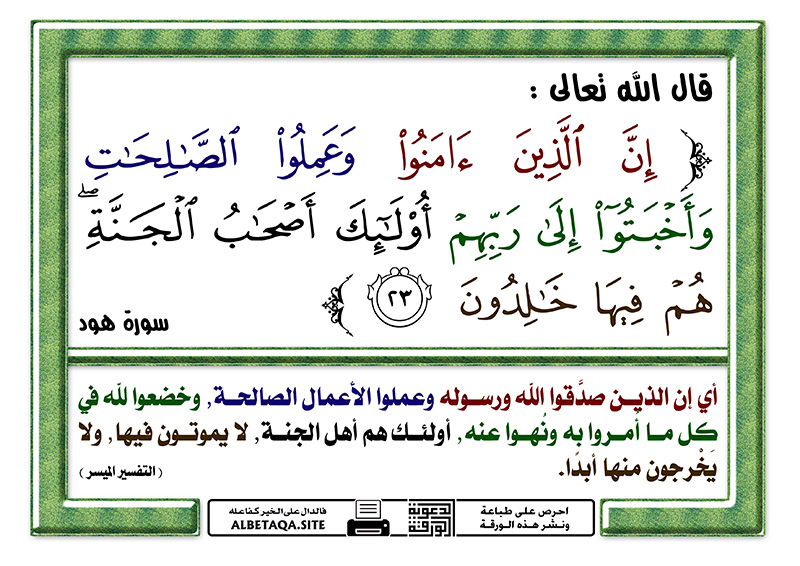 قال الله تعالى :
﴿ إِنَّ ٱلَّذِينَ ءَامَنُواْ وَعَمِلُواْ ٱلصَّـٰلِحَـٰتِ
وَأَخۡبَتُوٓاْ إِلَىٰ رَبِّهِمۡ أُوْلَـٰٓئِكَ أَصۡحَـٰبُ ٱلۡجَـنَّةِۖ
هُمۡ فِيهَا خَـٰلِدُونَ ٢٣ ﴾
سورة هود
أي إن الذيـن صدَّقوا الله ورسـوله وعملوا الأعمال الصالحـة, وخضعوا لله في
كل مـا أمـروا به ونُهـوا عنه, أولئـك هم أهل الجنـة, لا يموتـون فيهـا, ولا
يَخْرجون منها أبدًا.
( التفسير الميسر )
احرص على طباعة
ونشر هـذه الورقـة
الدعوية
الورقة
فالدال على الخير كفاعله
ALBETAQA.SITE